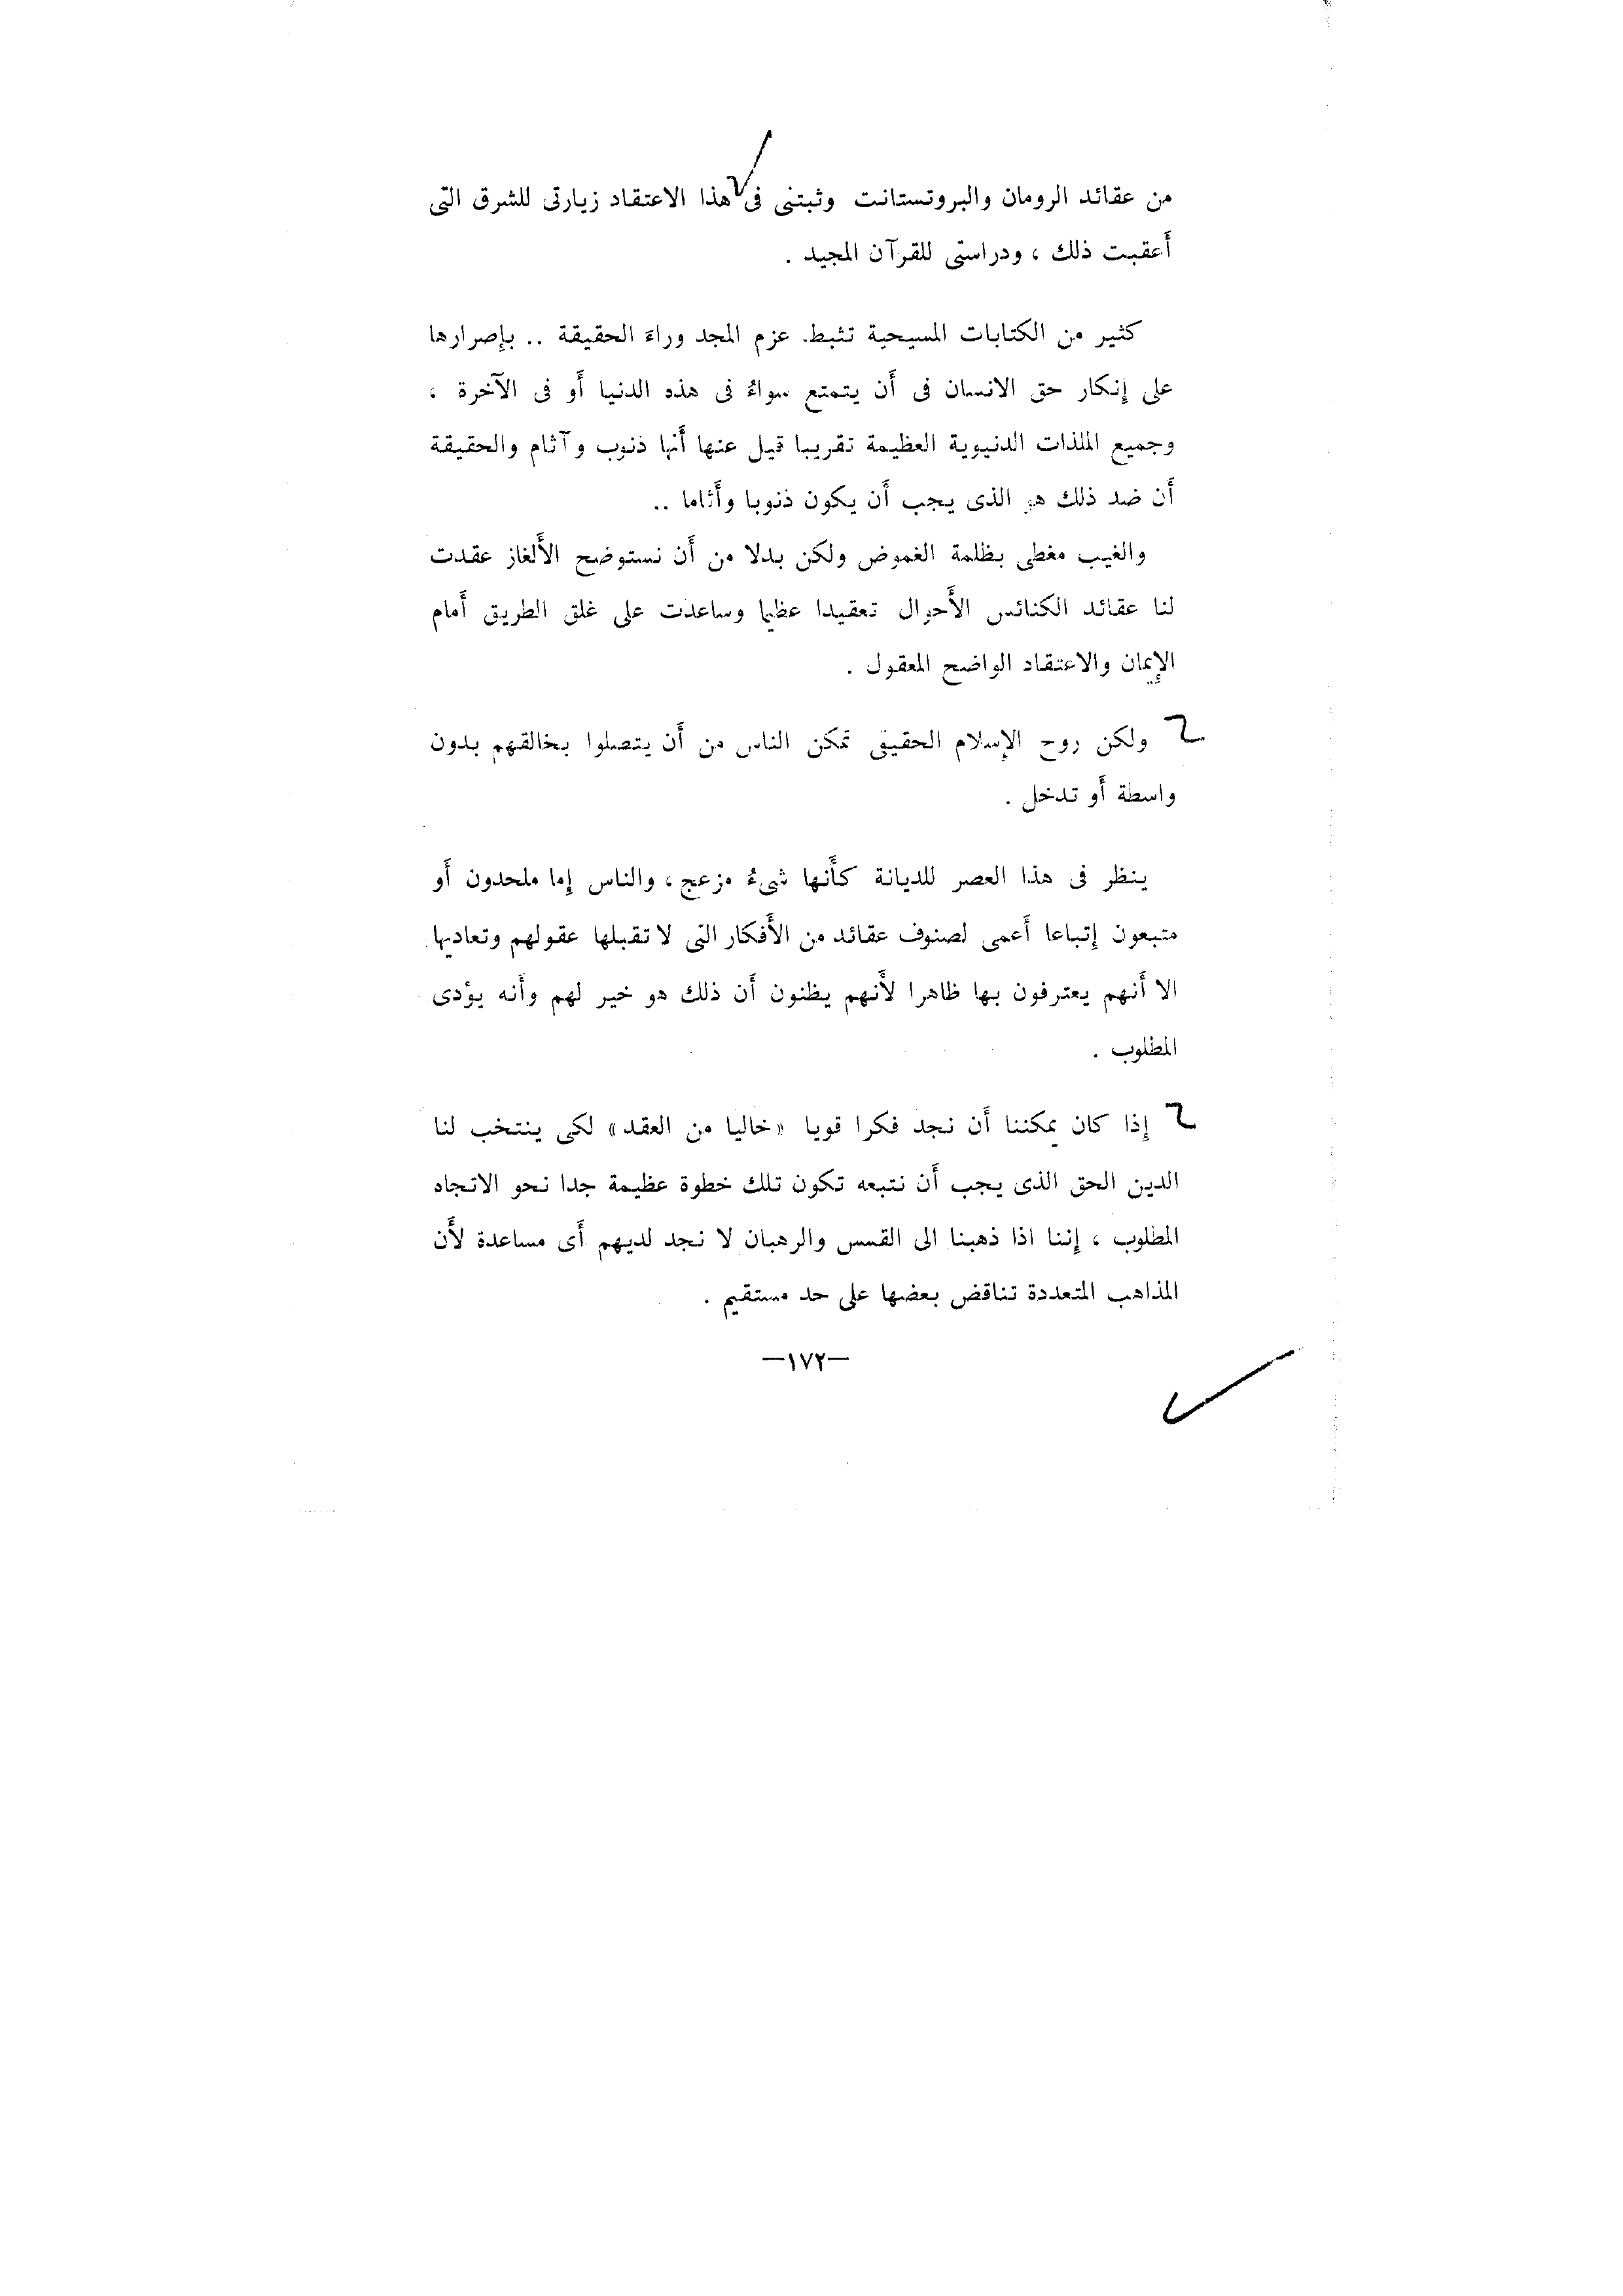 من عقائد الرومان والبروتستانت وثبتنى فى هذا الاعتقاد زيارتى للشرق التى
أعقبت ذلك ، ودراستى للقرآن المجيد .
كثير من الكتابات المسيحية تثبط. عزم المجد وراءَ الحقيقة .. بإصرارها
على إنكار حق الانسان فى أن يتمتع سواءُ فى هذه الدنيا أو فى الآخرة ،
وجميع الملذات الدنيوية العظيمة تقريبا قيل عنها أنها ذنوب وآثام والحقيقة
أن ضد ذلك هو الذى يجب أن يكون ذنوبا وأثاما ..
والغيب مغطى بظلمة الغموض ولكن بدلا من أن نستوضح الألغاز عقدت
لنا عقائد الكنائس الأحوال تعقيدا عظيما وساعدت على غلق الطريق أمام
الإيمان والاعتقاد الواضح المعقول .
ولكن روح الإسلام الحقيقى تمكن الناس من أن يتصلوا بخالقهم بدون
واسطة أو تدخل .
ينظر فى هذا العصر للديانة كأنها شىءُ مزعج ، والناس إما ملحدون أو
متبعون إتباعا أعمى لصنوف عقائد من الأفكار التى لا تقبلها عقولهم وتعاديها
الا أنهم يعترفون بها ظاهرا لأنهم يظنون أن ذلك هو خير لهم وأنه يؤدى
المطلوب .
إذا كان يمكننا أن نجد فكرا قويا «خاليا من العقد» لكى ينتخب لنا
الدين الحق الذى يجب أن نتبعه تكون تلك خطوة عظيمة جدا نحو الاتجاه
المطلوب ، إننا اذا ذهبنا الى القسس والرهبان لا نجد لديهم أى مساعدة لأن
المذاهب المتعددة تناقض بعضها على حد مستقيم .
—١٧٢—